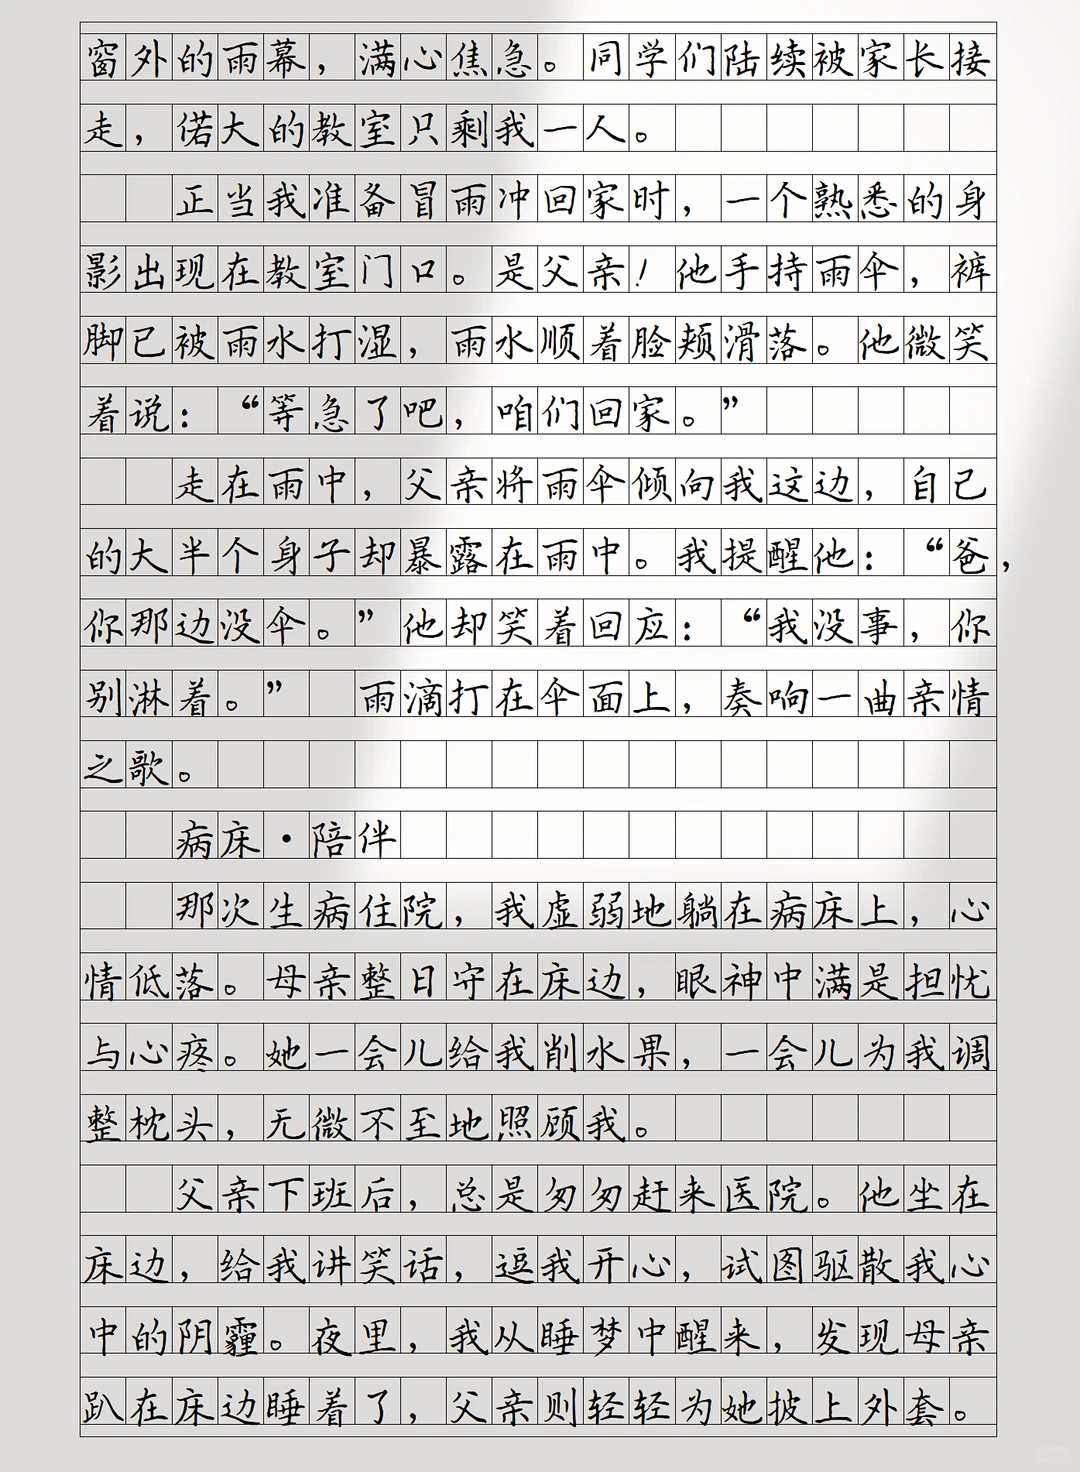 窗外的雨幕，满心焦急。同学们陆续被家长接
走，偌大的教室只剩我一人。
正当我准备冒雨冲回家时，一个熟悉的身
影出现在教室门口。是父亲！他手持雨伞，裤
脚已被雨水打湿，雨水顺着脸颊滑落。他微笑
着说：“等急了吧，咱们回家。”
走在雨中，父亲将雨伞倾向我这边，自己
的大半个身子却暴露在雨中。我提醒他：“爸，
你那边没伞。”他却笑着回应：“我没事，你
别淋着。” 雨滴打在伞面上，奏响一曲亲情
之歌。
病床·陪伴
那次生病住院，我虚弱地躺在病床上，心
情低落。母亲整日守在床边，眼神中满是担忧
与心疼。她一会儿给我削水果，一会儿为我调
整枕头，无微不至地照顾我。
父亲下班后，总是匆匆赶来医院。他坐在
床边，给我讲笑话，逗我开心，试图驱散我心
中的阴霾。夜里，我从睡梦中醒来，发现母亲
趴在床边睡着了，父亲则轻轻为她披上外套。